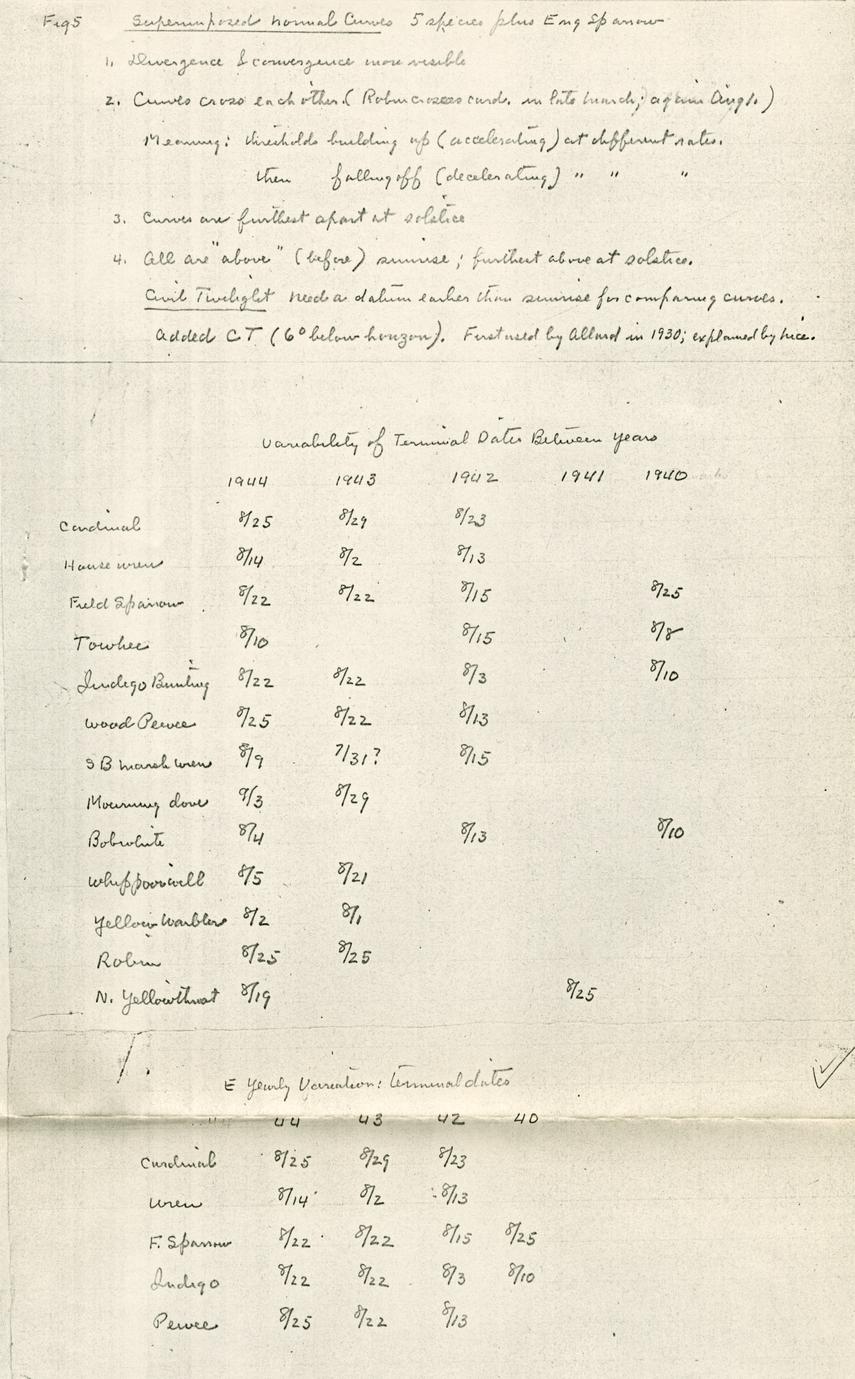 Fig 5 Superimposed Normal Curves 5 species plus Eng Sparrow
1. Divergence & convergence more visible
2. Curves cross each other. (Robin crosses card. in late March; again Aug 1.)
Meaning: thresholds building up (accelerating) at different rates.
then falling off (decelerating) " " "
3. Curves are furthest apart at solstice
4. All are "above" (before) sunrise; furthest above at solstice.
Civil Twilight need a datum earlier than sunrise for comparing curves.
Added CT (6° below horizon). First used by Allard in 1930; explained by Nice.
Variability of Terminal Dates Between Years
1944 1943 1942 1941 1940
Cardinal 8/25 8/29 8/23
House wren 8/14 8/2 8/13
Field Sparrow 8/22 8/22 8/15 8/25
Towhee 8/10 8/15 8/8
Indigo Bunting 8/22 8/22 8/3 8/10
Wood Pewee 8/25 8/22 8/13
S B marsh wren 8/9 7/31? 8/15
Mourning dove 9/3 8/29
Bobwhite 8/4 8/13 8/10
Whippoorwill 8/5 8/21
Yellow Warbler 8/2 8/1
Robin 8/25 8/25
N. Yellowthroat 8/19 8/25
E Yearly Variation: terminal dates
44 43 42 40
Cardinal 8/25 8/29 8/23
Wren 8/14 8/2 8/13
F. Sparrow 8/22 8/22 8/15 8/25
Indigo 8/22 8/22 8/3 8/10
Pewee 8/25 8/22 8/13